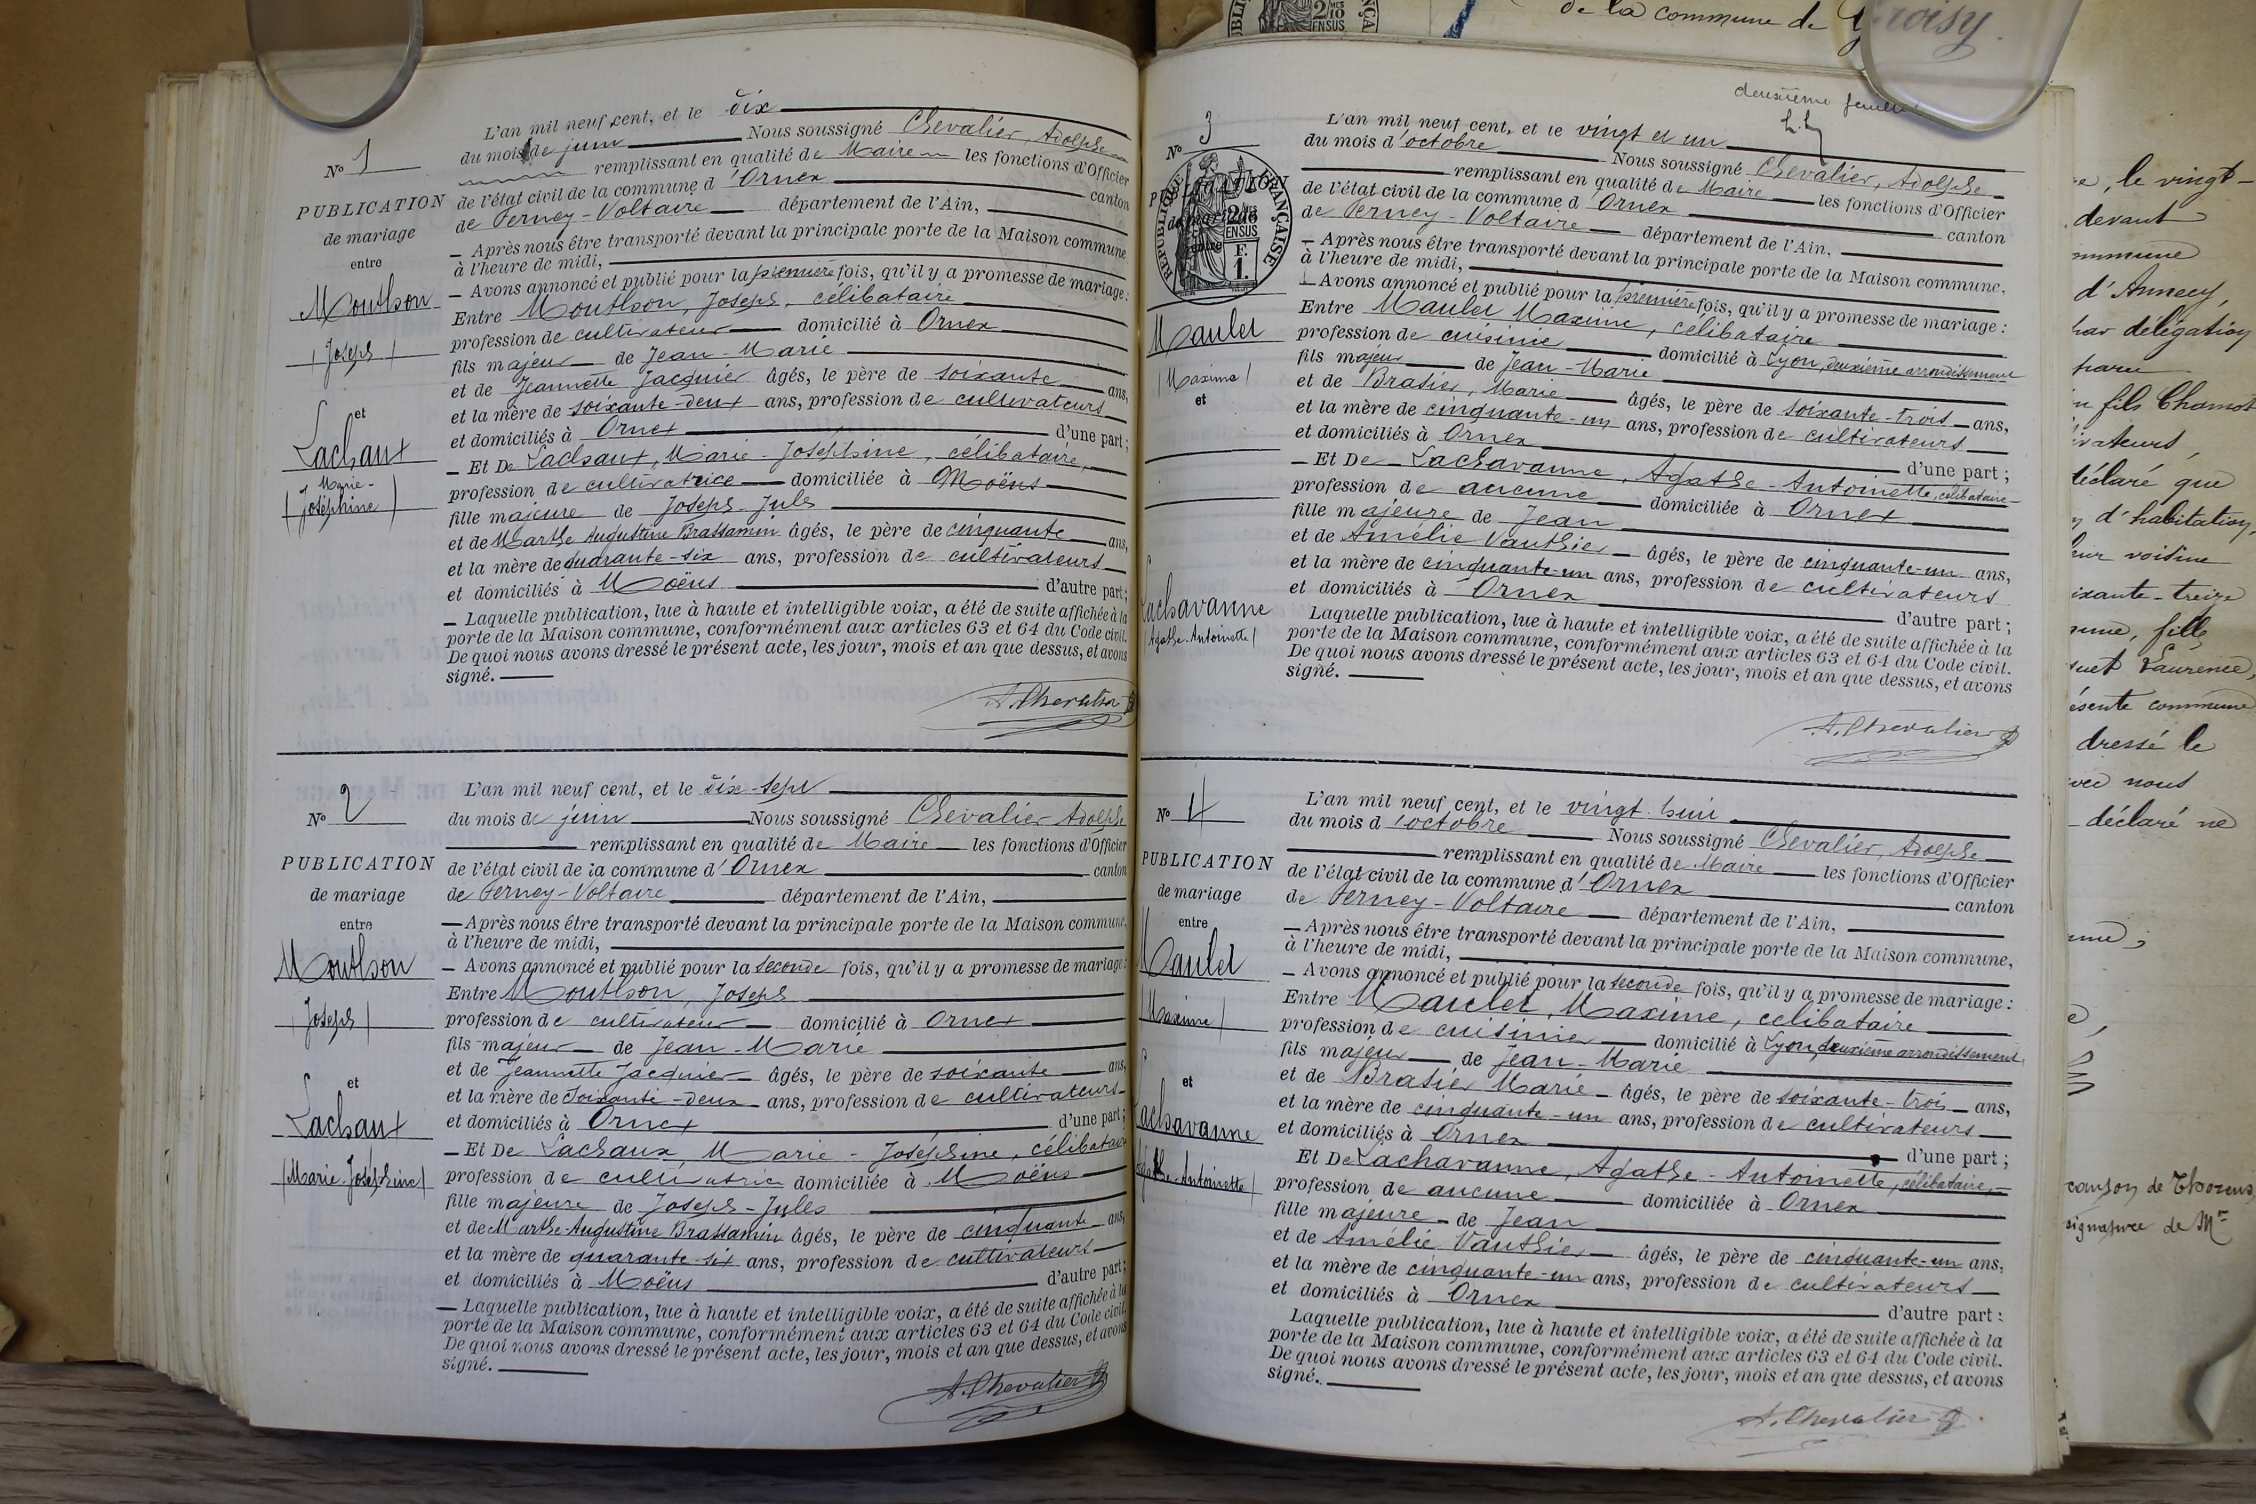 L'an mil neuf cent, et le dix
du mois de juin Nous soussigné Chevalier, Adolphe
remplissant en qualité de Maire les fonctions d'Officier
de l'état civil de la commune d'Ornex canton
de Ferney-Voltaire département de l'Ain,
— Après nous être transporté devant la principale porte de la Maison commune
à l'heure de midi,
— Avons annoncé et publié pour la première fois, qu'il y a promesse de mariage:
Entre Mouthon, Joseph, célibataire
profession de cultivateur domicilié à Ornex
fils majeur de Jean-Marie
et de Jeannette Jacquier âgés, le père de soixante ans,
et la mère de soixante-deux ans, profession de cultivateurs
et domiciliés à Ornex d'une part;
— Et De Lachaux, Marie-Joséphine, célibataire,
profession de cultivatrice domiciliée à Moëns
fille majeure de Joseph-Jules
et de Marthe Augustine Brassamin âgés, le père de cinquante ans,
et la mère de quarante-six ans, profession de cultivateurs
et domiciliés à Moëns d'autre part;
— Laquelle publication, lue à haute et intelligible voix, a été de suite affichée à la
porte de la Maison commune, conformément aux articles 63 et 64 du Code civil.
De quoi nous avons dressé le présent acte, les jour, mois et an que dessus, et avons
signé.
A. Chevalier
No 1
PUBLICATION
de mariage
entre
Mouthon
(Joseph)
et
Lachaux
(Marie-
Joséphine)
No 2
PUBLICATION
de mariage
entre
Mouthon
(Joseph)
et
Lachaux
(Marie-Joséphine)
L'an mil neuf cent, et le dix-sept
du mois de juin Nous soussigné Chevalier Adolphe
remplissant en qualité de Maire les fonctions d'Officier
de l'état civil de la commune d'Ornex canton
de Ferney-Voltaire département de l'Ain,
— Après nous être transporté devant la principale porte de la Maison commune,
à l'heure de midi,
— Avons annoncé et publié pour la seconde fois, qu'il y a promesse de mariage:
Entre Mouthon, Joseph
profession de cultivateur domicilié à Ornex
fils majeur de Jean-Marie
et de Jeannette Jacquier âgés, le père de soixante ans,
et la mère de soixante-deux ans, profession de cultivateurs
et domiciliés à Ornex d'une part;
— Et De Lachaux Marie-Joséphine, célibataire
profession de cultivatrice domiciliée à Moëns
fille majeure de Joseph-Jules
et de Marthe-Augustine Brassamin âgés, le père de cinquante ans,
et la mère de quarante-six ans, profession de cultivateurs
et domiciliés à Moëns d'autre part;
— Laquelle publication, lue à haute et intelligible voix, a été de suite affichée à la
porte de la Maison commune, conformément aux articles 63 et 64 du Code civil.
De quoi nous avons dressé le présent acte, les jour, mois et an que dessus, et avons
signé.
A. Chevalier
deuxième feuillet
No 3
RÉPUBLIQUE FRANÇAISE
2/10
EN SUS
F.
1.
Maulet
(Maxime)
et
Lachavanne
(Agathe-Antoinette)
L'an mil neuf cent, et le vingt et un
du mois d'octobre Nous soussigné Chevalier, Adolphe
remplissant en qualité de Maire les fonctions d'Officier
de l'état civil de la commune d'Ornex canton
de Ferney-Voltaire département de l'Ain,
— Après nous être transporté devant la principale porte de la Maison commune,
à l'heure de midi,
— Avons annoncé et publié pour la première fois, qu'il y a promesse de mariage:
Entre Maulet Maxime, célibataire
profession de cuisinier domicilié à Lyon, deuxième arrondissement
fils majeur de Jean-Marie
et de Brasier, Marie âgés, le père de soixante-trois ans,
et la mère de cinquante-un ans, profession de cultivateurs
et domiciliés à Ornex d'une part;
— Et De Lachavanne, Agathe-Antoinette, célibataire
profession de aucune domiciliée à Ornex
fille majeure de Jean
et de Amélie Vauthier âgés, le père de cinquante-un ans,
et la mère de cinquante-un ans, profession de cultivateurs
et domiciliés à Ornex d'autre part;
Laquelle publication, lue à haute et intelligible voix, a été de suite affichée à la
porte de la Maison commune, conformément aux articles 63 et 64 du Code civil.
De quoi nous avons dressé le présent acte, les jour, mois et an que dessus, et avons
signé.
A. Chevalier
No 4
PUBLICATION
de mariage
entre
Maulet
(Maxime)
et
Lachavanne
(Agathe-Antoinette)
L'an mil neuf cent, et le vingt huit
du mois d'octobre Nous soussigné Chevalier, Adolphe
remplissant en qualité de Maire les fonctions d'Officier
de l'état civil de la commune d'Ornex canton
de Ferney-Voltaire département de l'Ain,
— Après nous être transporté devant la principale porte de la Maison commune,
à l'heure de midi,
— Avons annoncé et publié pour la seconde fois, qu'il y a promesse de mariage:
Entre Maulet, Maxime, célibataire
profession de cuisinier domicilié à Lyon, deuxième arrondissement
fils majeur de Jean-Marie
et de Brasier Marie âgés, le père de soixante-trois ans,
et la mère de cinquante-un ans, profession de cultivateurs
et domiciliés à Ornex d'une part;
Et De Lachavanne, Agathe-Antoinette, célibataire,
profession de aucune domiciliée à Ornex
fille majeure de Jean
et de Amélie Vauthier âgés, le père de cinquante-un ans,
et la mère de cinquante-un ans, profession de cultivateurs
et domiciliés à Ornex d'autre part:
Laquelle publication, lue à haute et intelligible voix, a été de suite affichée à la
porte de la Maison commune, conformément aux articles 63 et 64 du Code civil.
De quoi nous avons dressé le présent acte, les jour, mois et an que dessus, et avons
signé.
A. Chevalier
de la commune de Groisy.
le vingt-
devant
d'Annecy,
par délégation
fils Chamot
déclaré que
d'habitation,
voisine
fille
Laurence,
commune
dressé le
nous
déclaré ne
de Thorens
signature de Mr